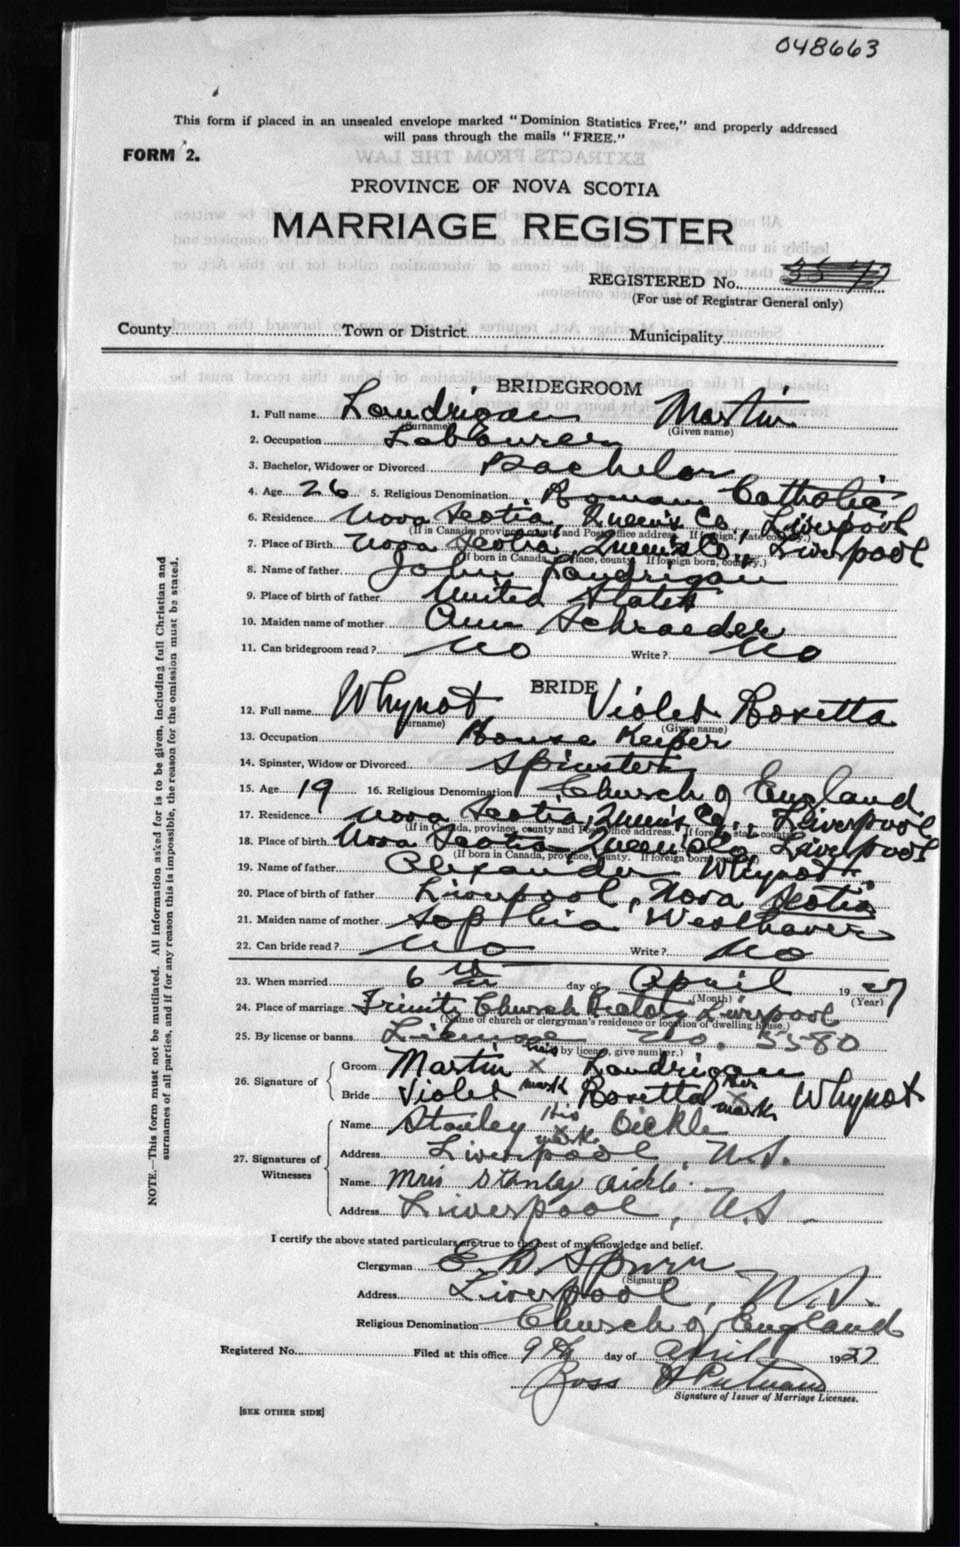 048663
This form if placed in an unsealed envelope marked "Dominion Statistics Free," and properly addressed
will pass through the mails "FREE."
FORM 2.
PROVINCE OF NOVA SCOTIA
MARRIAGE REGISTER
REGISTERED No.
(For use of Registrar General only)
County Town or District Municipality
BRIDEGROOM
1. Full name Landrigan Martin
(Surname) (Given name)
2. Occupation Labourer
3. Bachelor, Widower or Divorced Bachelor
4. Age 26 5. Religious Denomination Roman Catholic
6. Residence Nova Scotia, Queen's Co, Liverpool
(If in Canada, province, county and Post office address. If foreign, state country.)
7. Place of Birth Nova Scotia, Queen's Co, Liverpool
(If born in Canada, province, county. If foreign born, country.)
8. Name of father John Landrigan
9. Place of birth of father United States
10. Maiden name of mother Ann Schraeder
11. Can bridegroom read? No Write? No
BRIDE
12. Full name Whynot Violet Rosetta
(Surname) (Given name)
13. Occupation House Keeper
14. Spinster, Widow or Divorced Spinster
15. Age 19 16. Religious Denomination Church of England
17. Residence Nova Scotia, Queen's Co., Liverpool
(If in Canada, province, county and Post office address. If foreign state country)
18. Place of birth Nova Scotia Queen's Co, Liverpool
(If born in Canada, province, county. If foreign born country)
19. Name of father Alexander Whynot
20. Place of birth of father Liverpool, Nova Scotia
21. Maiden name of mother Sophia Westhaver
22. Can bride read? No Write? No
23. When married 6th day of April 1927
(Month) (Year)
24. Place of marriage Trinity Church Rectory Liverpool
(Name of church or clergyman's residence or location of dwelling house.)
25. By license or banns License No. 5580
(If by license, give number.)
26. Signature of
Groom Martin his x mark Landrigan
Bride Violet Rosetta her x mark Whynot
27. Signatures of Witnesses
Name Stanley his x mark Oickle
Address Liverpool, N.S.
Name Mrs Stanley Oickle
Address Liverpool, N.S.
I certify the above stated particulars are true to the best of my knowledge and belief.
Clergyman E. D. Spurr
(Signature)
Address Liverpool, N.S.
Religious Denomination Church of England
Registered No. Filed at this office 9th day of April 1927
Ross
Signature of Issuer of Marriage Licenses.
[SEE OTHER SIDE]
NOTE.—This form must not be mutilated. All information asked for is to be given, including full Christian and
surnames of all parties, and if for any reason this is impossible, the reason for the omission must be stated.